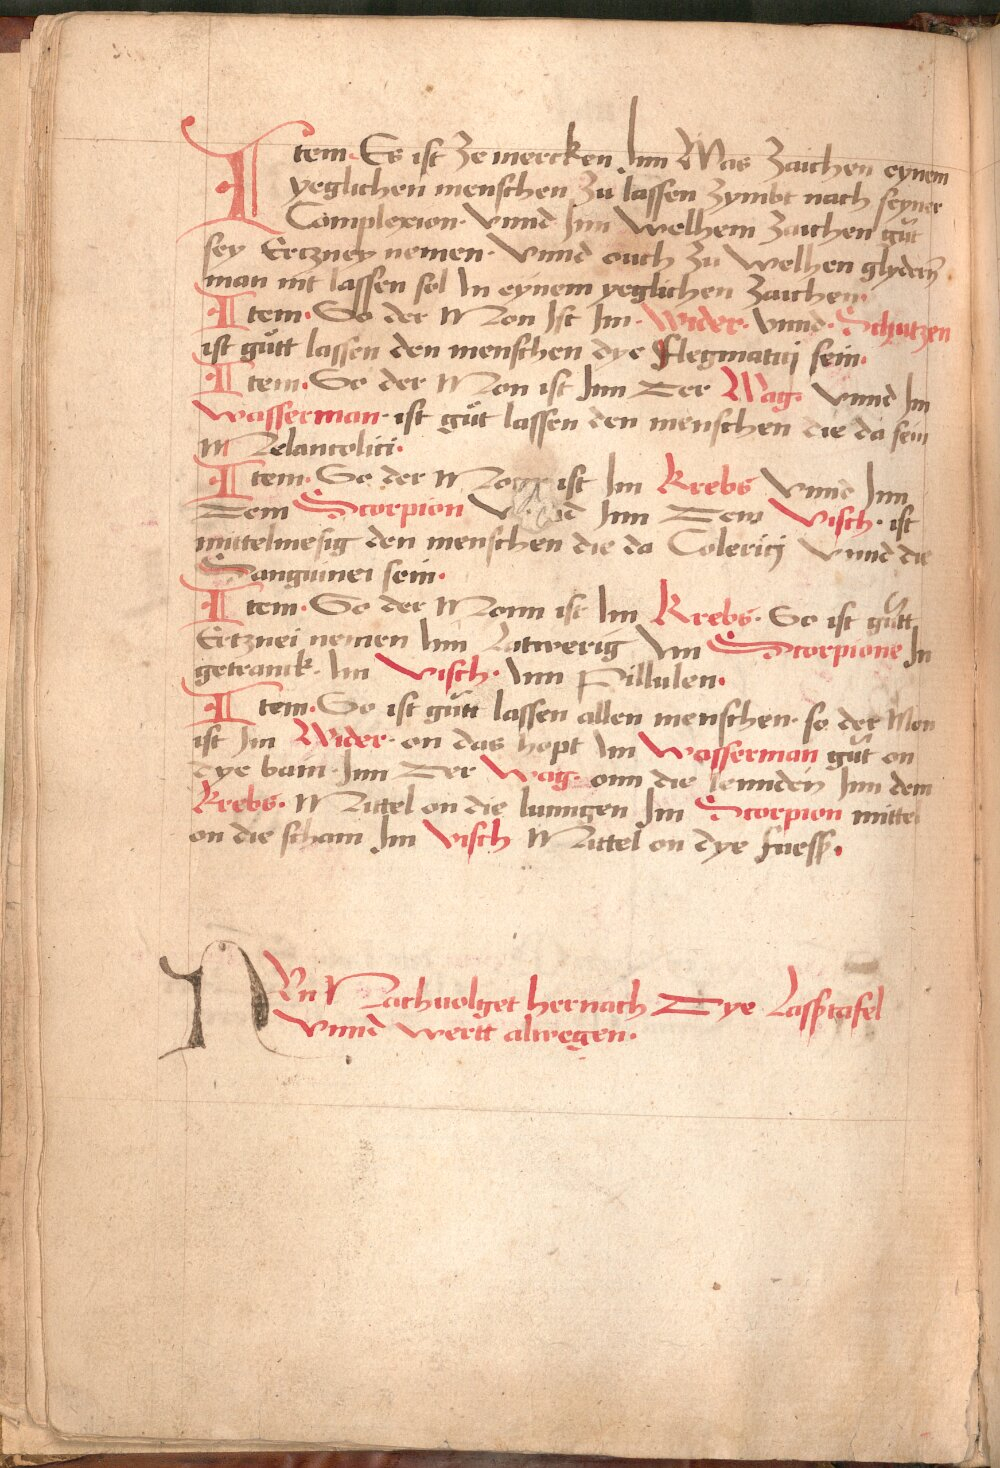 Item. Es ist ze mercken Inn Was Zaichen eynem
yeglichen menschen Zu lassen zymbt nach seyner
Complexion. Vnnd Inn Welhem Zaichen gůt
sey Ertzney nemen. Vnnd ouch Zu Welhen glydern
man nit lassen sol In eynem yeglichen Zaichen.
Item. So der Mon Ist Im. Wider. vnnd. Schutzen
ist gůtt lassen den menschen dye Flegmatici sein.
Item. So der Mon ist Inn Der Wag. vnnd Im
Wasserman. ist gůt lassen den menschen die da sein
Melancolici.
Item. So der Monn ist Im Krebs Vnnd Inn
Dem Scorpion Vnnd Inn Dem Visch. ist
mittelmesig den menschen die da Colerici Vnnd die
Sanguinei sein.
Item. So der Monn ist Im Krebs. So ist gůtt
Ertznei nemen Inn Latwerig Im Scorpione In
getranck. Im Visch. Inn Pillulen.
Item. So ist gůtt lassen allen menschen. so der Mon
ist Im Wider. on das hopt Im Wasserman gůt on
dye bain. Inn Der Wag. onn die lennden Inn dem
Krebs. Mittel on die lunngen Im Scorpion mittel
on die scham Im Visch Mittel on dye fuess.
NVn Nachuolget hernach Dye Lasstafel
Vnnd wertt alwegen.